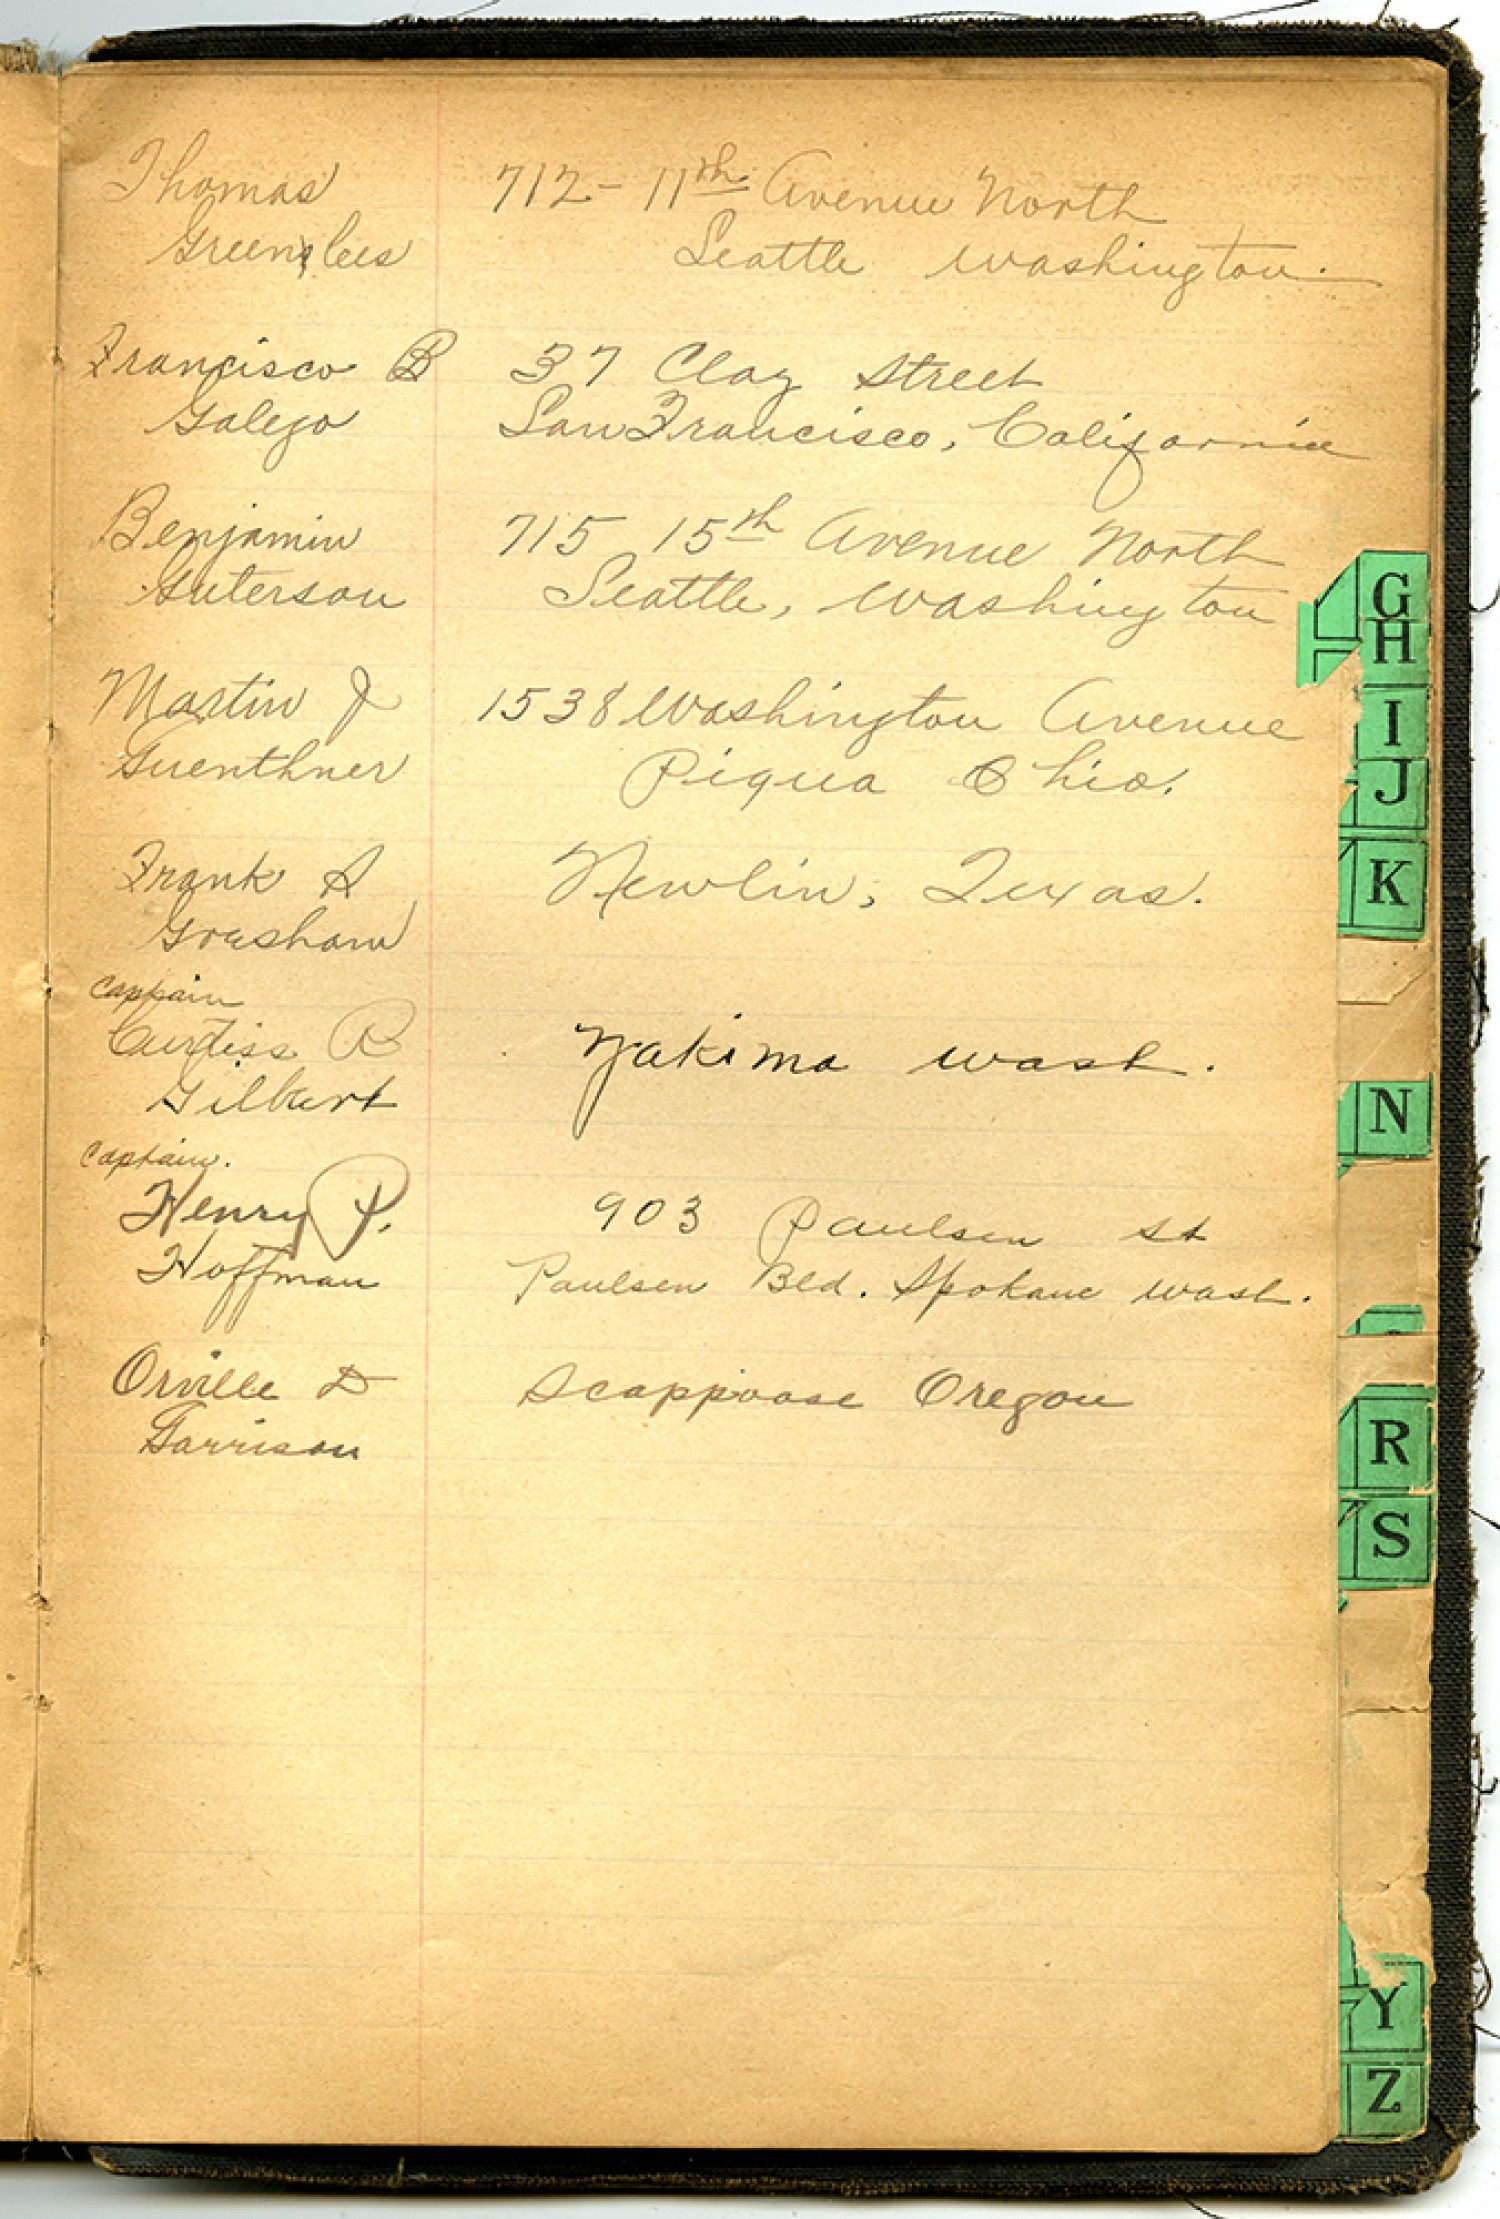 Thomas 712 - 11th Avenue North
Greenslees Seattle Washington.
Francisco B 37 Clay Street
Galego San Francisco, California
Benjamin 715 15th Avenue North
Guterson Seattle, Washington
Martin J 1538 Washington Avenue
Guenthner Piqua Ohio.
Frank S Newlin, Texas.
Goeshaw
Captain
Curtiss R Yakima Wash.
Gilbert
Captain.
Henry P. 903 Paulsen St
Hoffman Paulsen Bld. Spokane Wash.
Orville D Scappoose Oregon
Garrison
G
H
I
J
K
N
R
S
Y
Z